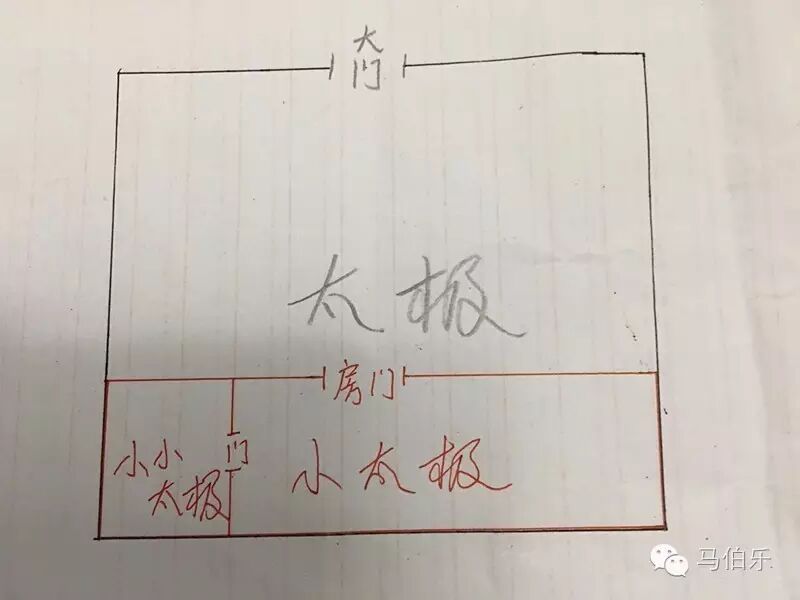 大
门
太极
房门
小小
太极
门
小太极
马伯乐